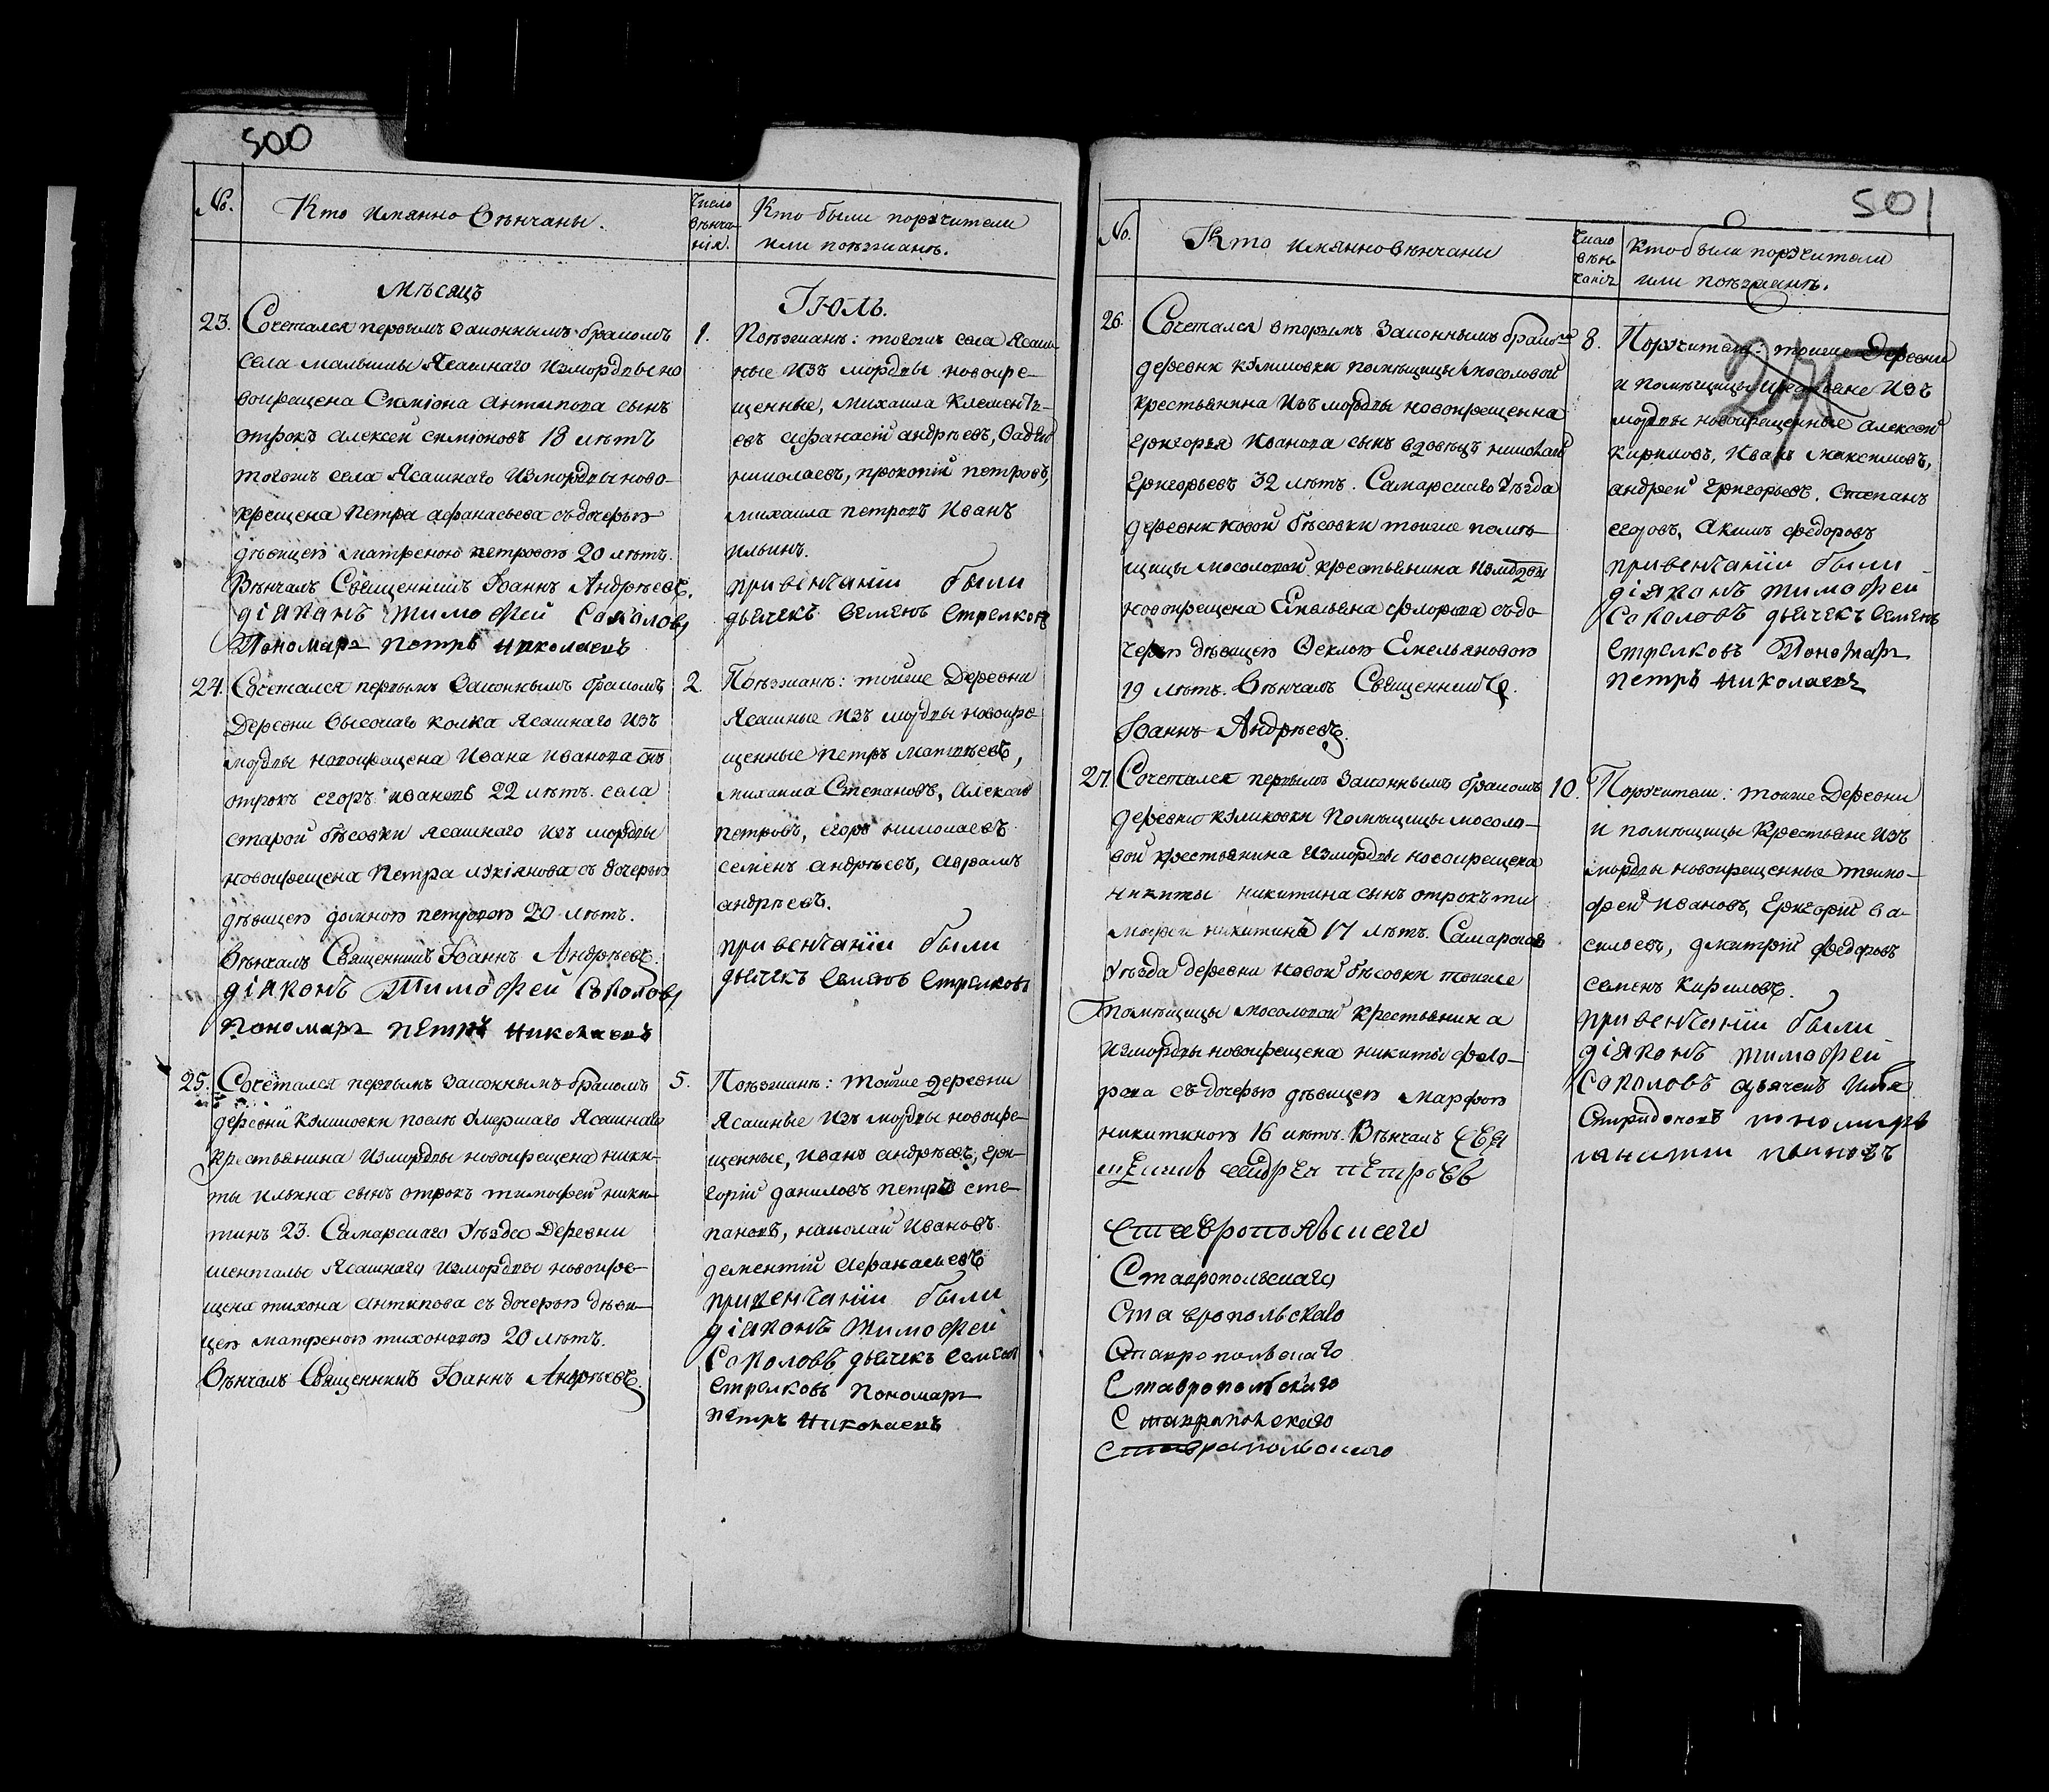 500
№. Кто имянно вѣнчаны. Число вѣнчанія. Кто были поручители
или поѣзжанѣ.
Мѣсяцъ Іюль.
23. Сочетался первымъ законнымъ бракомъ
села малыклы Ясашнаго изморды но
вокрещена Симіона антипова сынъ
отрокъ алексей симіоновъ 18 лѣтъ
тогожъ села Ясашнаго изморды ново-
крещена Петра афанасьева съ дочерью
дѣвицею матреною петровою 20 лѣтъ.
Вѣнчалъ Священникъ Іоаннъ Андрѣевъ.
діяконъ тимофей Соколовъ
Пономарь петръ николаевъ
1. Поѣзжанѣ: тогожъ села Ясаш-
ные изъ морды новокре-
щенные, михаила клементь-
евъ афанасій андрѣевъ, Фадей
николаевъ, прокопій петровъ,
михаила петровъ иванъ
ильинъ.
при венчаніи были
дьячекъ семенъ стрелковъ
24. Сочетался первымъ законнымъ бракомъ
деревни высокаго колка ясашнаго изъ
морды новокрещена ивана иванова снъ
отрокъ егоръ ивановъ 22 лѣтъ. села
старой бѣсовки ясашнаго изъ морды
новокрещена петра лукіянова съ дочерью
дѣвицею домною петровою 20 лѣтъ.
вѣнчалъ Священникъ Іоаннъ Андрѣевъ.
діяконъ Тимофей Соколовъ
пономарь петръ николаевъ
2. Поѣзжанѣ: тойже деревни
ясашные изъ морды новокре-
щенные петръ матвѣевъ,
михаила Степановъ, алексей
петровъ, егоръ николаевъ
семенъ андрѣевъ, аврамъ
андрѣевъ.
при венчаніи были
дьячекъ семенъ стрелковъ
25. Сочетался первымъ законнымъ бракомъ
деревни куликовки послѣ умершаго ясашнаго
крестьянина изморды новокрещена ники-
ты ильина сынъ отрокъ тимофей ники-
тинъ 23. Самарскаго уѣзда деревни
шенталы ясашнаго изморды новокре-
щена тихона антипова съ дочерью дѣви-
цею матреною тихоновою 20 лѣтъ.
вѣнчалъ Священникъ Іоаннъ Андрѣевъ.
5. Поѣзжанѣ: тойже деревни
ясашные изъ морды новокре-
щенные, иванъ андрѣевъ, гри-
горій даниловъ петръ сте-
пановъ, николай ивановъ
дементій афанасьевъ
при венчаніи были
діяконъ тимофей
Соколовъ дьячекъ семенъ
стрелковъ пономарь
петръ николаевъ
501
№. Кто имянно вѣнчаны Число вѣнчанія Кто были поручители
или поѣзжанѣ.
26. Сочетался вторымъ законнымъ бракомъ
деревни куликовки помѣщицы мосоловой
крестьянина изъ морды новокрещенна
григорья иванова сынъ вдовецъ николай
григорьевъ 32 лѣтъ. Самарскаго уѣзда
деревни новой бѣсовки тойже помѣ-
щицы мосоловой крестьянина изморды
новокрещена Емельяна федорова съ до
черью дѣвицею Феклою Емельяновою
19 лѣтъ. вѣнчалъ Священникъ
Іоаннъ Андрѣевъ.
8. Поручители: тоиже деревни
и помѣщицы крестьяне изъ
морды новокрещенные алексей
кириловъ, иванъ максимовъ,
андрей григорьевъ, степанъ
егоровъ, акимъ федоровъ
при венчаніи были
діяконъ тимофей
Соколовъ дьячекъ семенъ
стрелковъ Пономарь
петръ николаевъ
27. Сочетался первымъ законнымъ бракомъ
деревни куликовки помѣщицы мосоло-
вой крестьянина изморды новокрещена
никиты никитина сынъ отрокъ ти
мофеи никитинъ 17 лѣтъ. Самарскаго
уѣзда деревни новой бѣсовки тоиже
помѣщицы мосоловой крестьянина
изморды новокрещена никиты федо-
рова съ дочерью дѣвицею марфою
никитиною 16 лѣтъ. Вѣнчалъ свя
щенникъ андрей петровъ
10. Поручители: тоиже деревни
и помѣщицы крестьяне изъ
морды новокрещенные тимо-
фей ивановъ, григорій ва-
сильевъ, дмитрій федоровъ
семенъ кириловъ.
при венчаніи были
діяконъ тимофей
Соколовъ дьячекъ илья
Спиридоновъ пономарь
Ставропольскаго
Ставропольскаго
Ставропольскаго
Ставропольскаго
Ставропольскаго
Ставропольскаго
Ставропольскаго